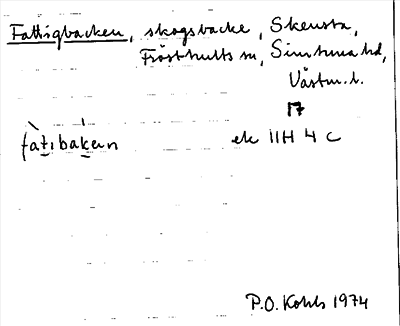 Fattigbacken, skogsbacke, Skensta,
Frösthults sn, Simtuna hd,
Västm. l.
17
fàtıbakən ek 11H 4 c
P.O. Kohls 1974